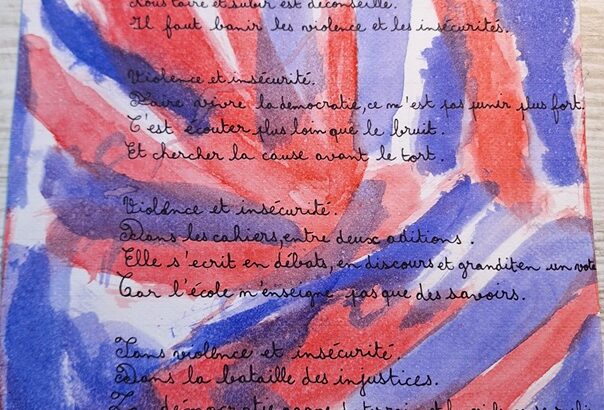 Nous taire et subir est déconseillé.
Il faut banir les violence et les insécurités.
Violence et insécurité.
Faire vivre la démocratie, ce n'est pas punir plus fort.
C'est écouter plus loin que le bruit.
Et chercher la cause avant le tort.
Violence et insécurité.
Dans les cahiers, entre deux aditions.
Elle s'ecrit en débats, en discours et grandit en un vote
Car l'école n'enseigne pas que des savoirs.
Sans violence et insécurité.
Dans la bataille des injustices.
La démocratie gagne